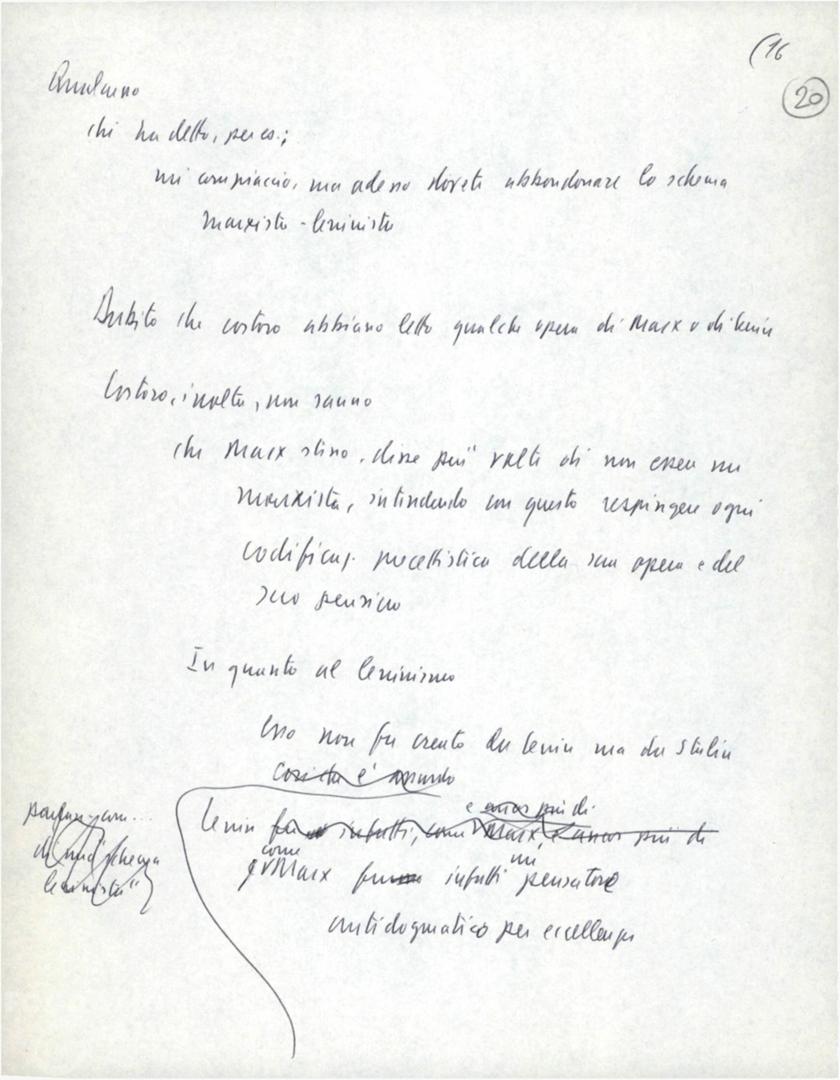 (16
20
Qualcuno
chi ha detto, per es.;
mi compiaccio, ma adesso dovete abbandonare lo schema
marxista-leninista
Dubito che costoro abbiano letto qualche opera di Marx o di Lenin
Costoro, inoltre, non sanno
che Marx stesso, disse più volte di non essere un
marxista, intendendo con questo respingere ogni
codificaz. precettistica della sua opera e del
suo pensiero
In quanto al leninismo
Esso non fu creato da Lenin ma da Stalin
Cosicché è assurdo
e ancor più di
Lenin fu infatti, come Marx, e ancor più di
come un
Marx fu infatti pensatore
antidogmatico per eccellenza
parlare
di uno "schema
leninista"